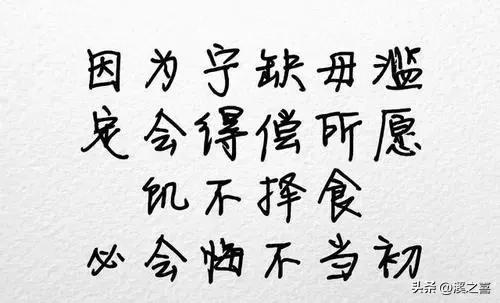 因为宁缺毋滥
定会得偿所愿
饥不择食
必会悔不当初
头条 @溪之喜